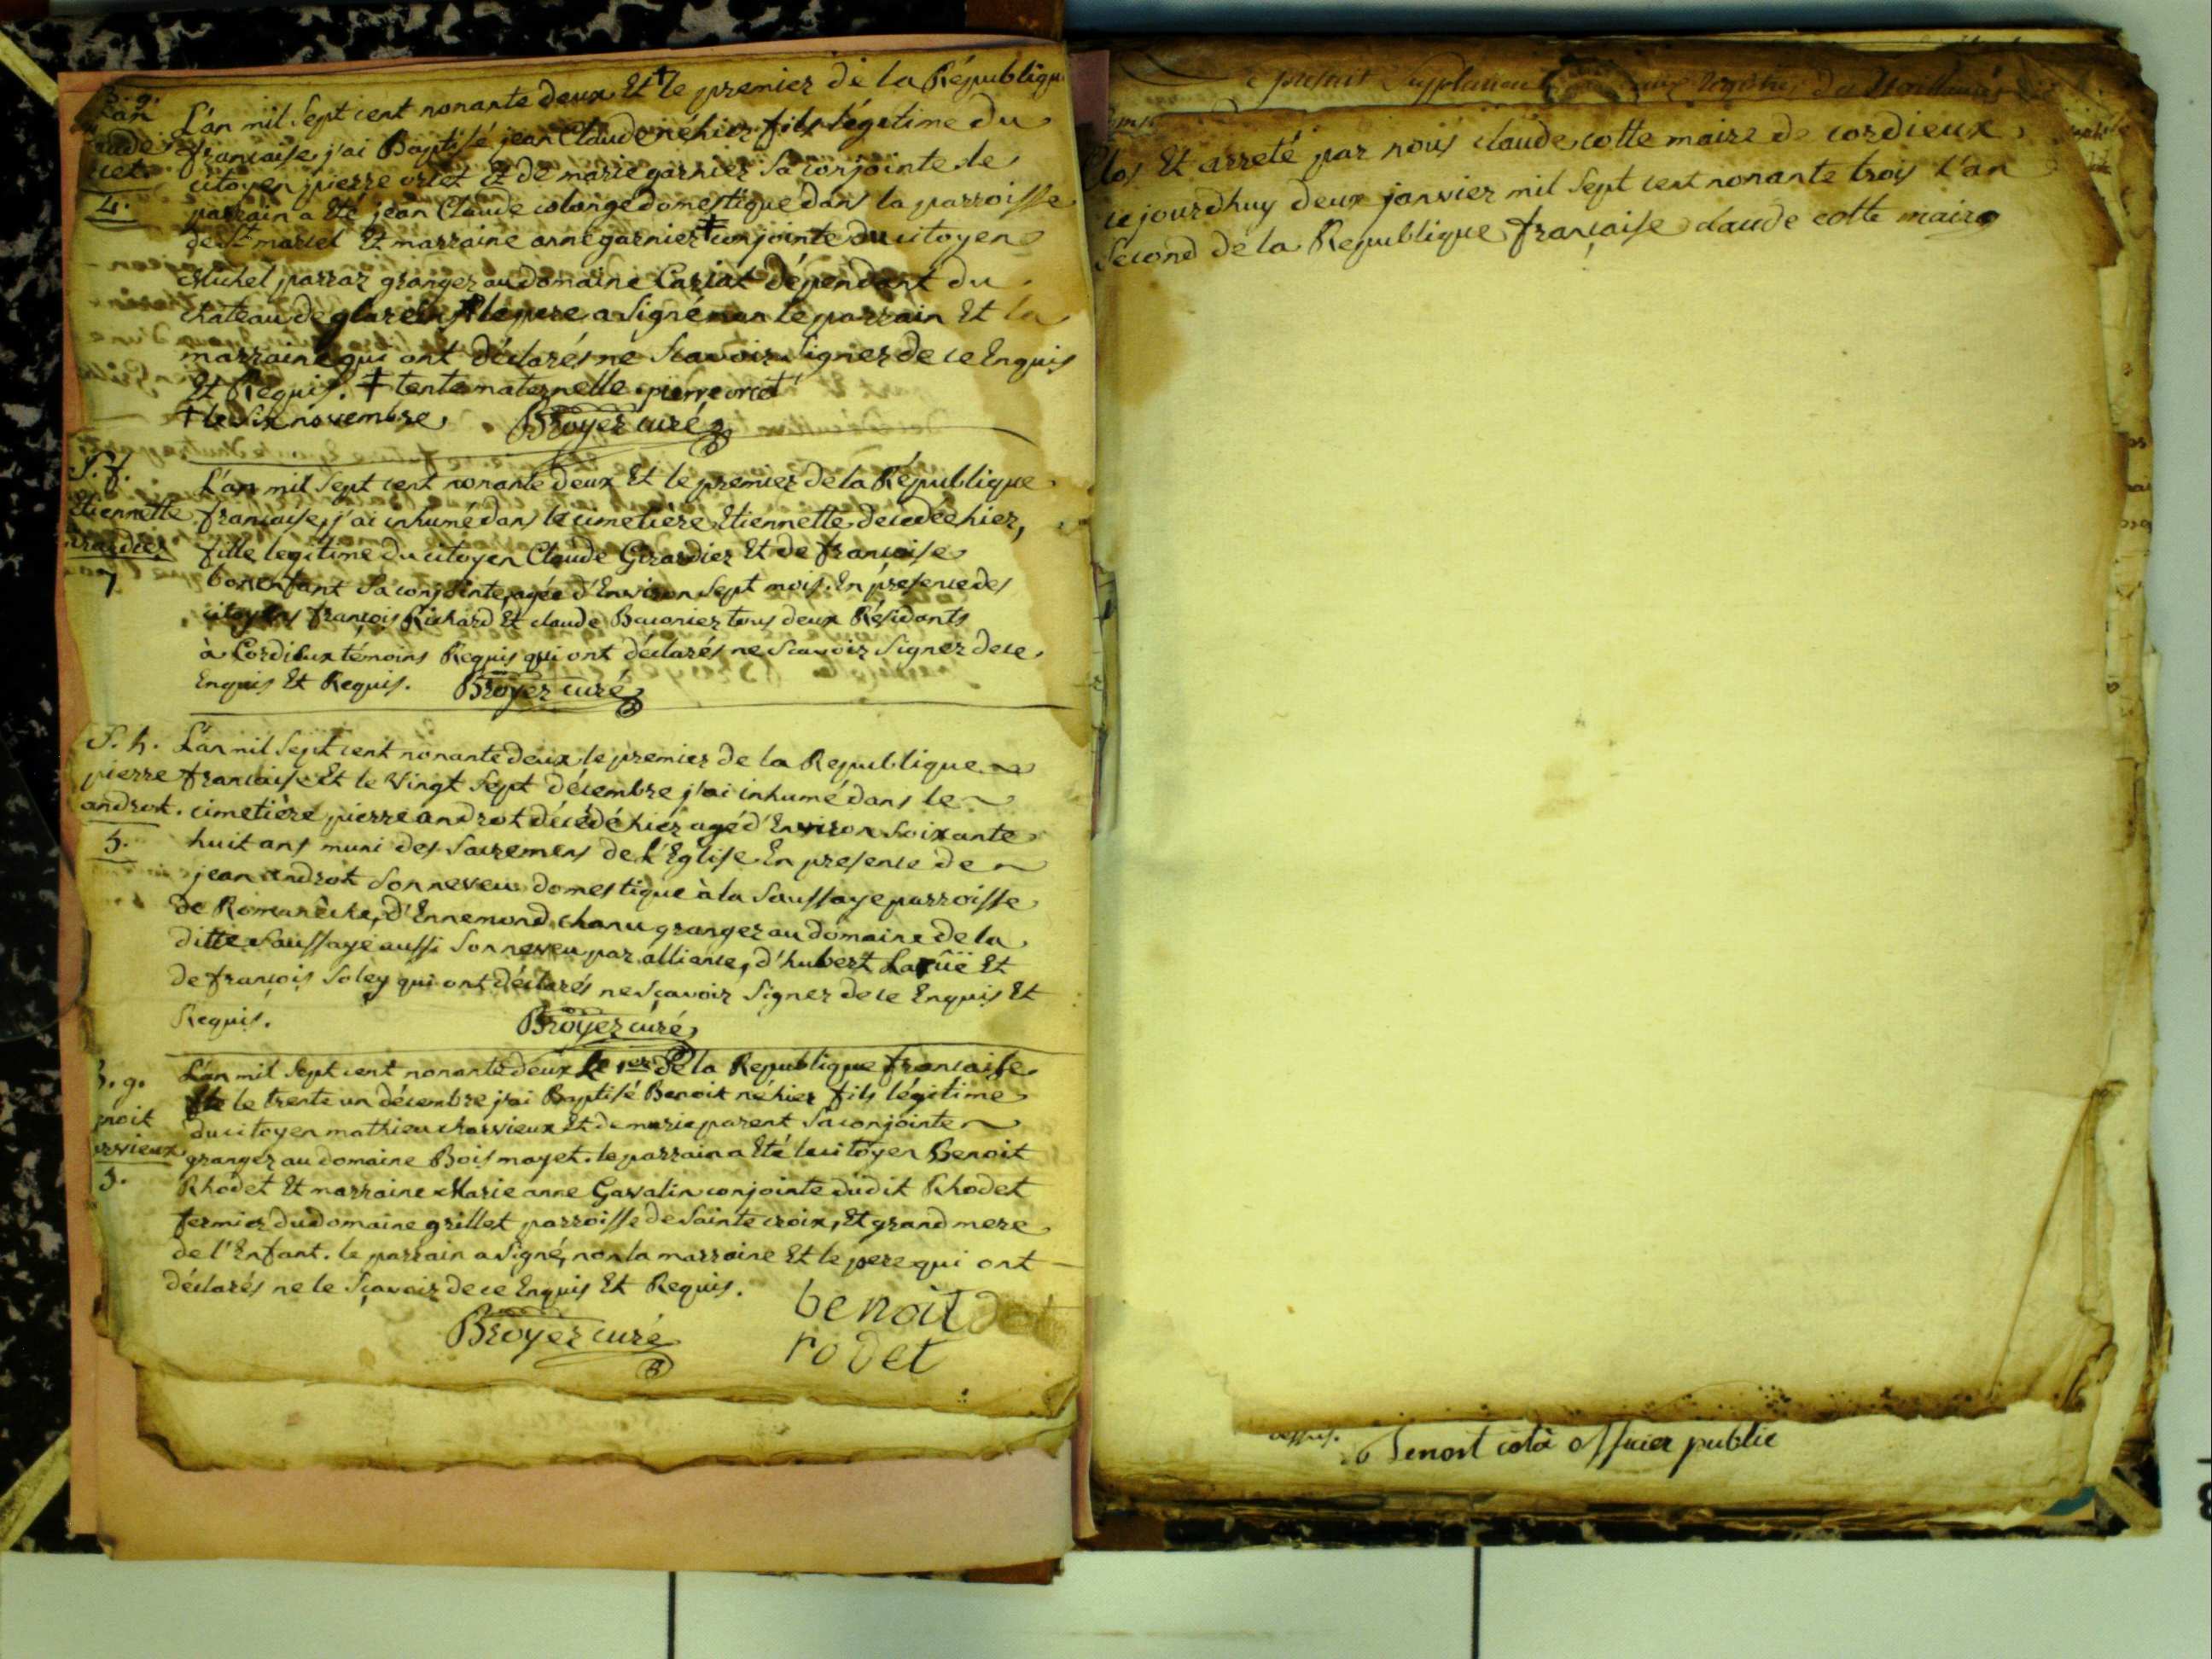 L'an mil Sept cent nonante deux Et † le premier de la République
francaise, j'ai Baptisé jean Claude né hier fils légitime du
citoyen pierre orset Et de marie garnier Sa conjointe le
parrain a Eté jean Claude colonge domestique dans la parroisse
de St marcel Et marraine anne garnier ‡ conjointe du citoyen
Michel parraz granger au domaine Cariat dépendant du
chateau de glareins le pere a Signé non le parrain Et la
marraine qui ont déclarés ne Scavoir Signer de ce Enquis
Et Requis. ‡ tente maternelle. pierre orcet
† le Six novembre. Broyer curé
S. f. L'an mil Sept cent nonante deux Et le premier de la République
Etiennette francaise, j'ai inhumé dans le cimetière Etiennette decedée hier,
fille legitime du citoyen Claude Girardier Et de francoise
7 bonenfant Sa conjointe, agée d'Environ Sept mois. En présence des
citoyens francois Richard Et claude Baconier tous deux Résidants
à Cordieux témoins Requis qui ont déclarés ne Scavoir Signer de ce
Enquis Et Requis. Broyer curé
S. h. L'an mil Sept cent nonante deux le premier de la Republique
pierre francaise Et le Vingt Sept décembre j'ai inhumé dans le
androt. cimetière pierre androt décédé hier agé d'Environ Soixante
5. huit ans muni des Sacremens de l'Eglise En presence de
jean androt Son neveu domestique à la Saussaye parroisse
de Romanèche, d'Ennemond chanu granger au domaine de la
ditte Saussaye aussi Son neveu par alliance, d'hubert Larüe Et
de francois Soley qui ont déclarés ne Sçavoir Signer de ce Enquis Et
Requis. Broyer curé
L'an mil Sept cent nonante deux le 1er de la Republique francaise
Et le trente un décembre j'ai Baptisé Benoit né hier fils légitime
du citoyen mathieu charvieux Et de marie parent Sa conjointe
granger au domaine Bois mayet. le parrain a Eté le citoyen Benoit
3. Rhodet Et marraine Marie anne Gavalin conjointe dudit Rhodet
fermier du domaine grillet parroisse de Sainte croix, Et grand mere
de l'Enfant. le parrain a Signé, non la marraine Et le pere qui ont
déclarés ne le Sçavoir de ce Enquis Et Requis.
benoit
Broyer curé rodet
Clos Et arreté par nous claude cotte maire de cordieux
ce jourdhuy deux janvier mil Sept cent nonante trois l'an
Second de la Republique francaise claude cotte maire
officier public